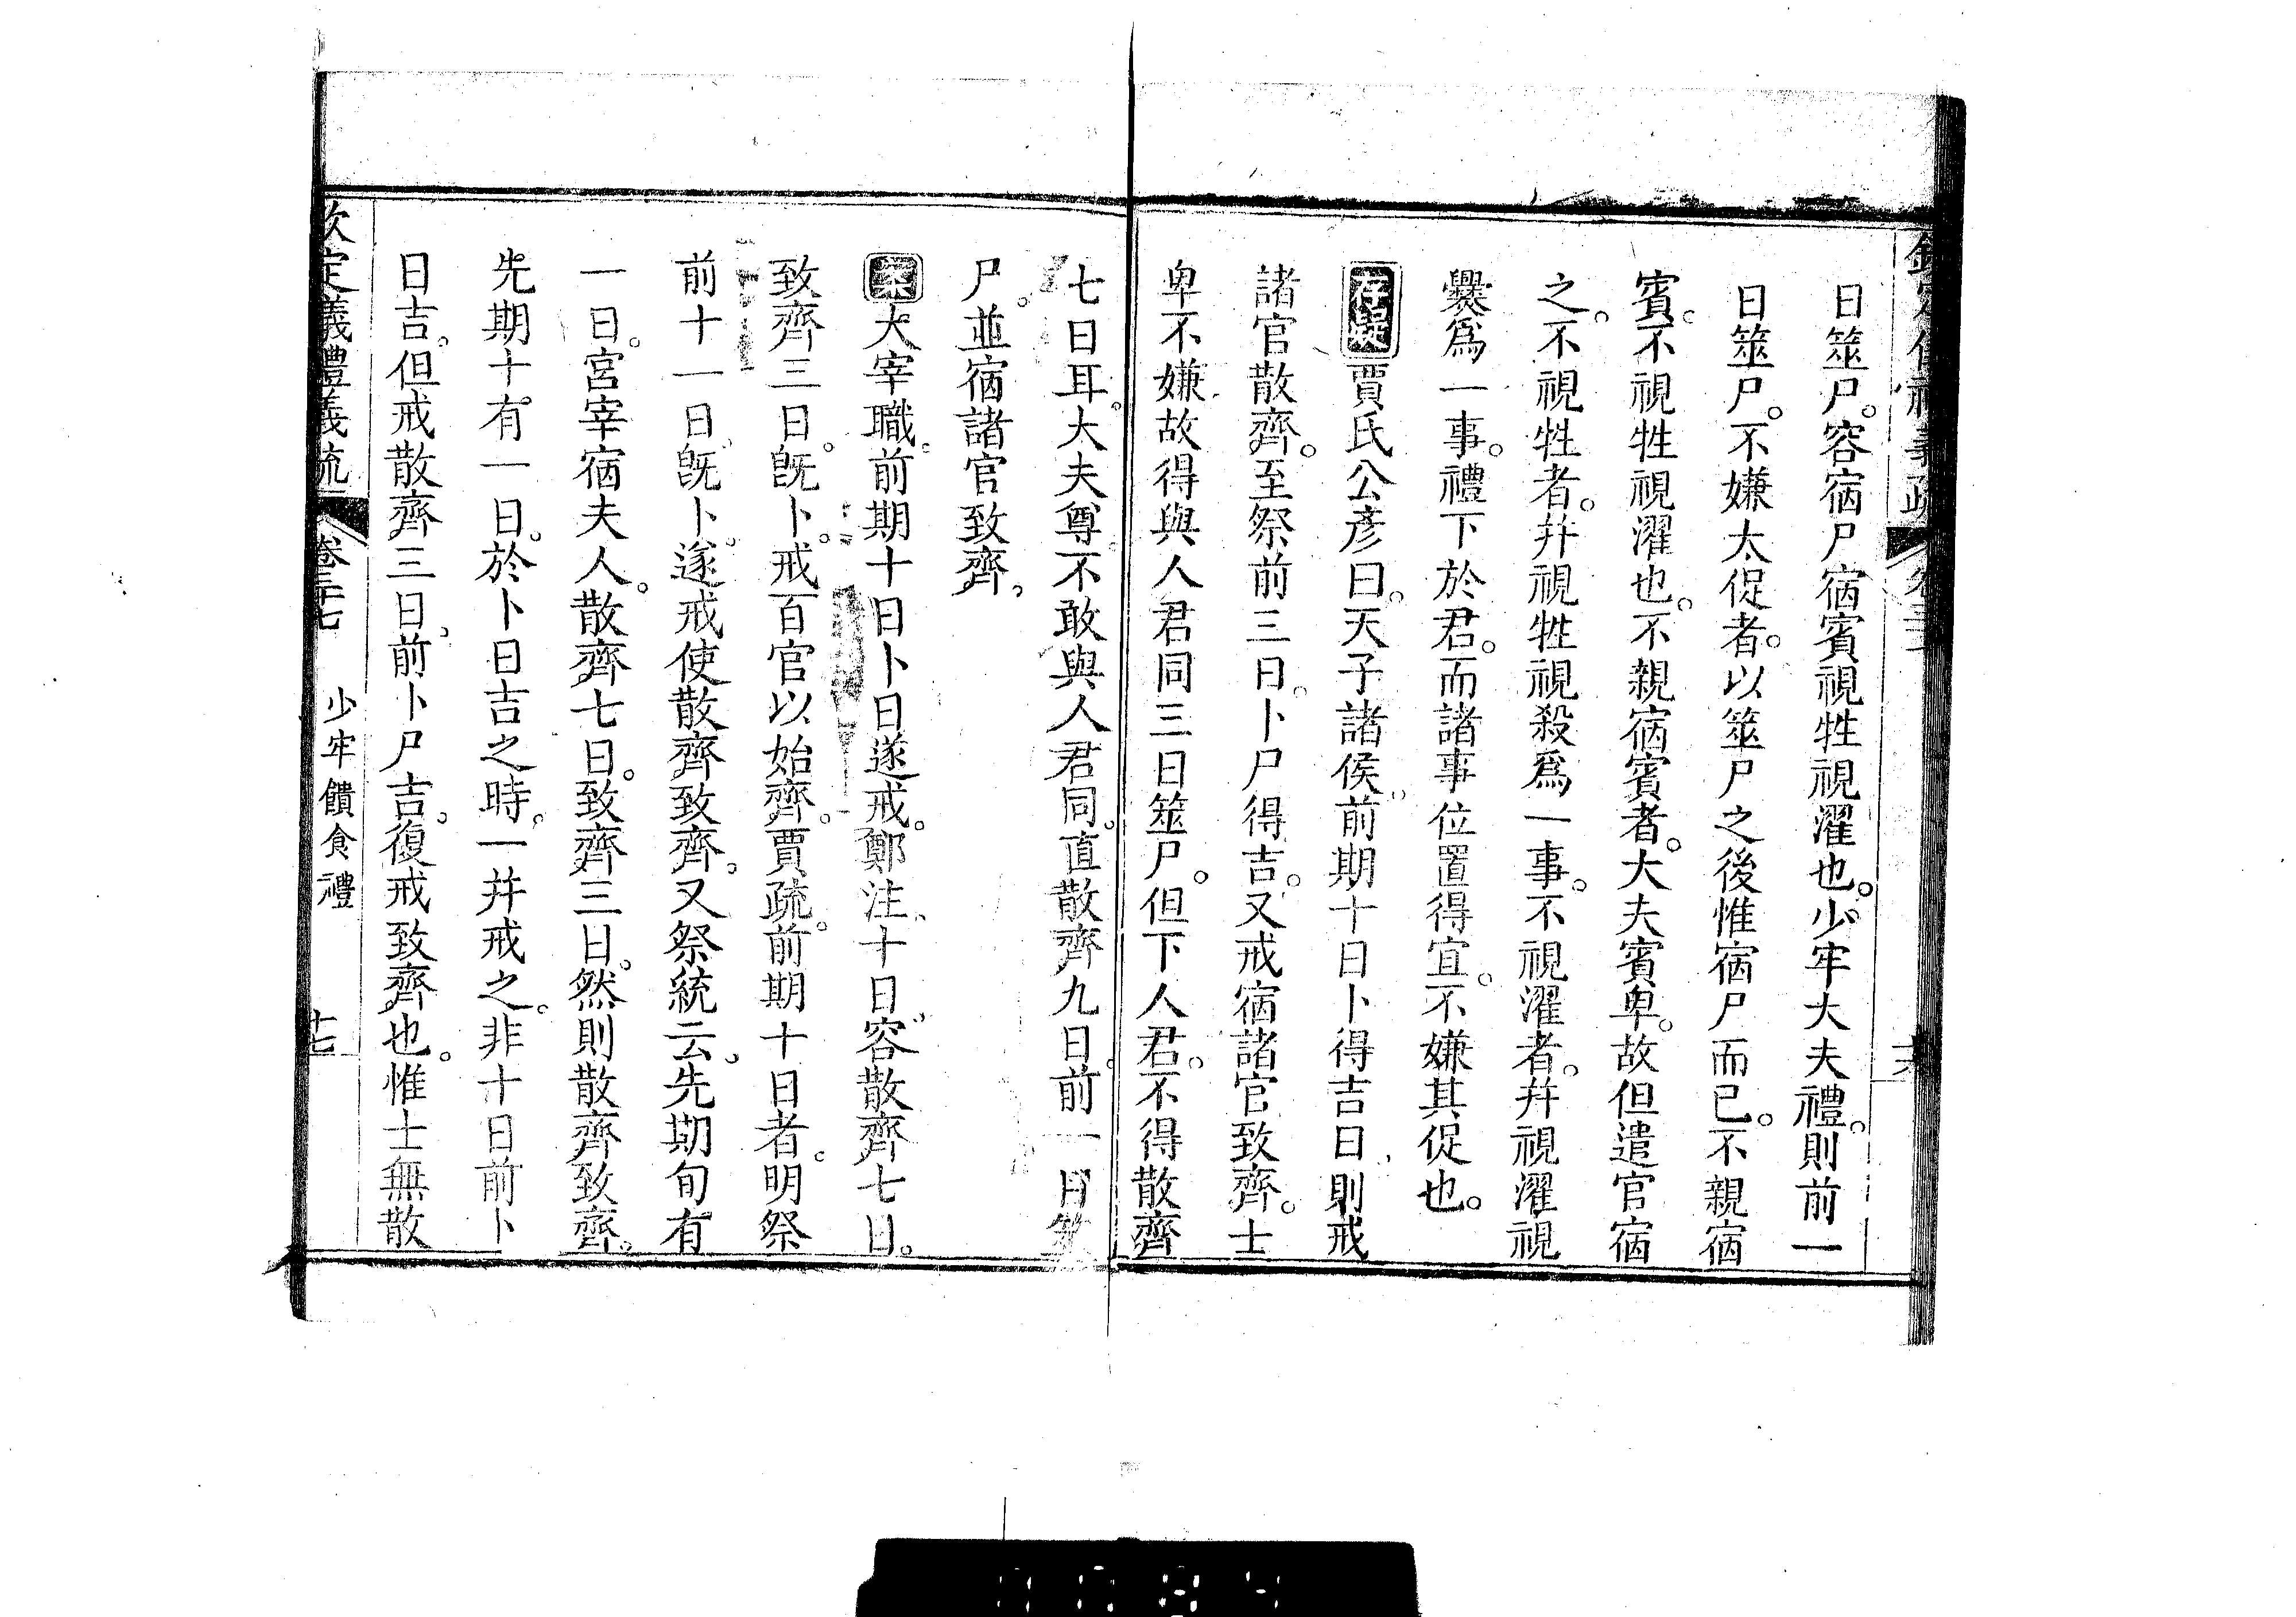 日筮尸。容宿尸宿賓視牲視濯也。少牢大夫禮。則前一
日筮尸。不嫌太促者。以筮尸之後惟宿尸而已。不親宿
賓。不視牲視濯也。不親宿賓者。大夫賓卑。故但遣官宿
之。不視牲者。幷視牲視殺爲一事。不視濯者。幷視濯視
爨爲一事。禮下於君。而諸事位置得宜。不嫌其促也。
存疑賈氏公彥曰。天子諸侯。前期十日卜得吉日。則戒
諸官散齊。至祭前三日。卜尸得吉。又戒宿諸官致齊。士
卑不嫌故得與人君同三日筮尸。但下人君。不得散齊
七日耳。大夫尊。不敢與人君同。直散齊九日。前一日筮
尸。並宿諸官致齊。
案大宰職。前期十日卜日遂戒。鄭注。十日。容散齊七日。
致齊三日。旣卜。戒百官以始齊。賈疏。前期十日者。明祭
前十一日旣卜。遂戒使散齊致齊。又祭統云。先期旬有
一日。宮宰宿夫人。散齊七日。致齊三日。然則散齊致齊。
先期十有一日。於卜日吉之時。一幷戒之。非十日前卜
日吉。但戒散齊三日。前卜尸吉。復戒致齊也。惟士無散
欽定義禮義疏 卷三十七 少牢饋食禮 十七